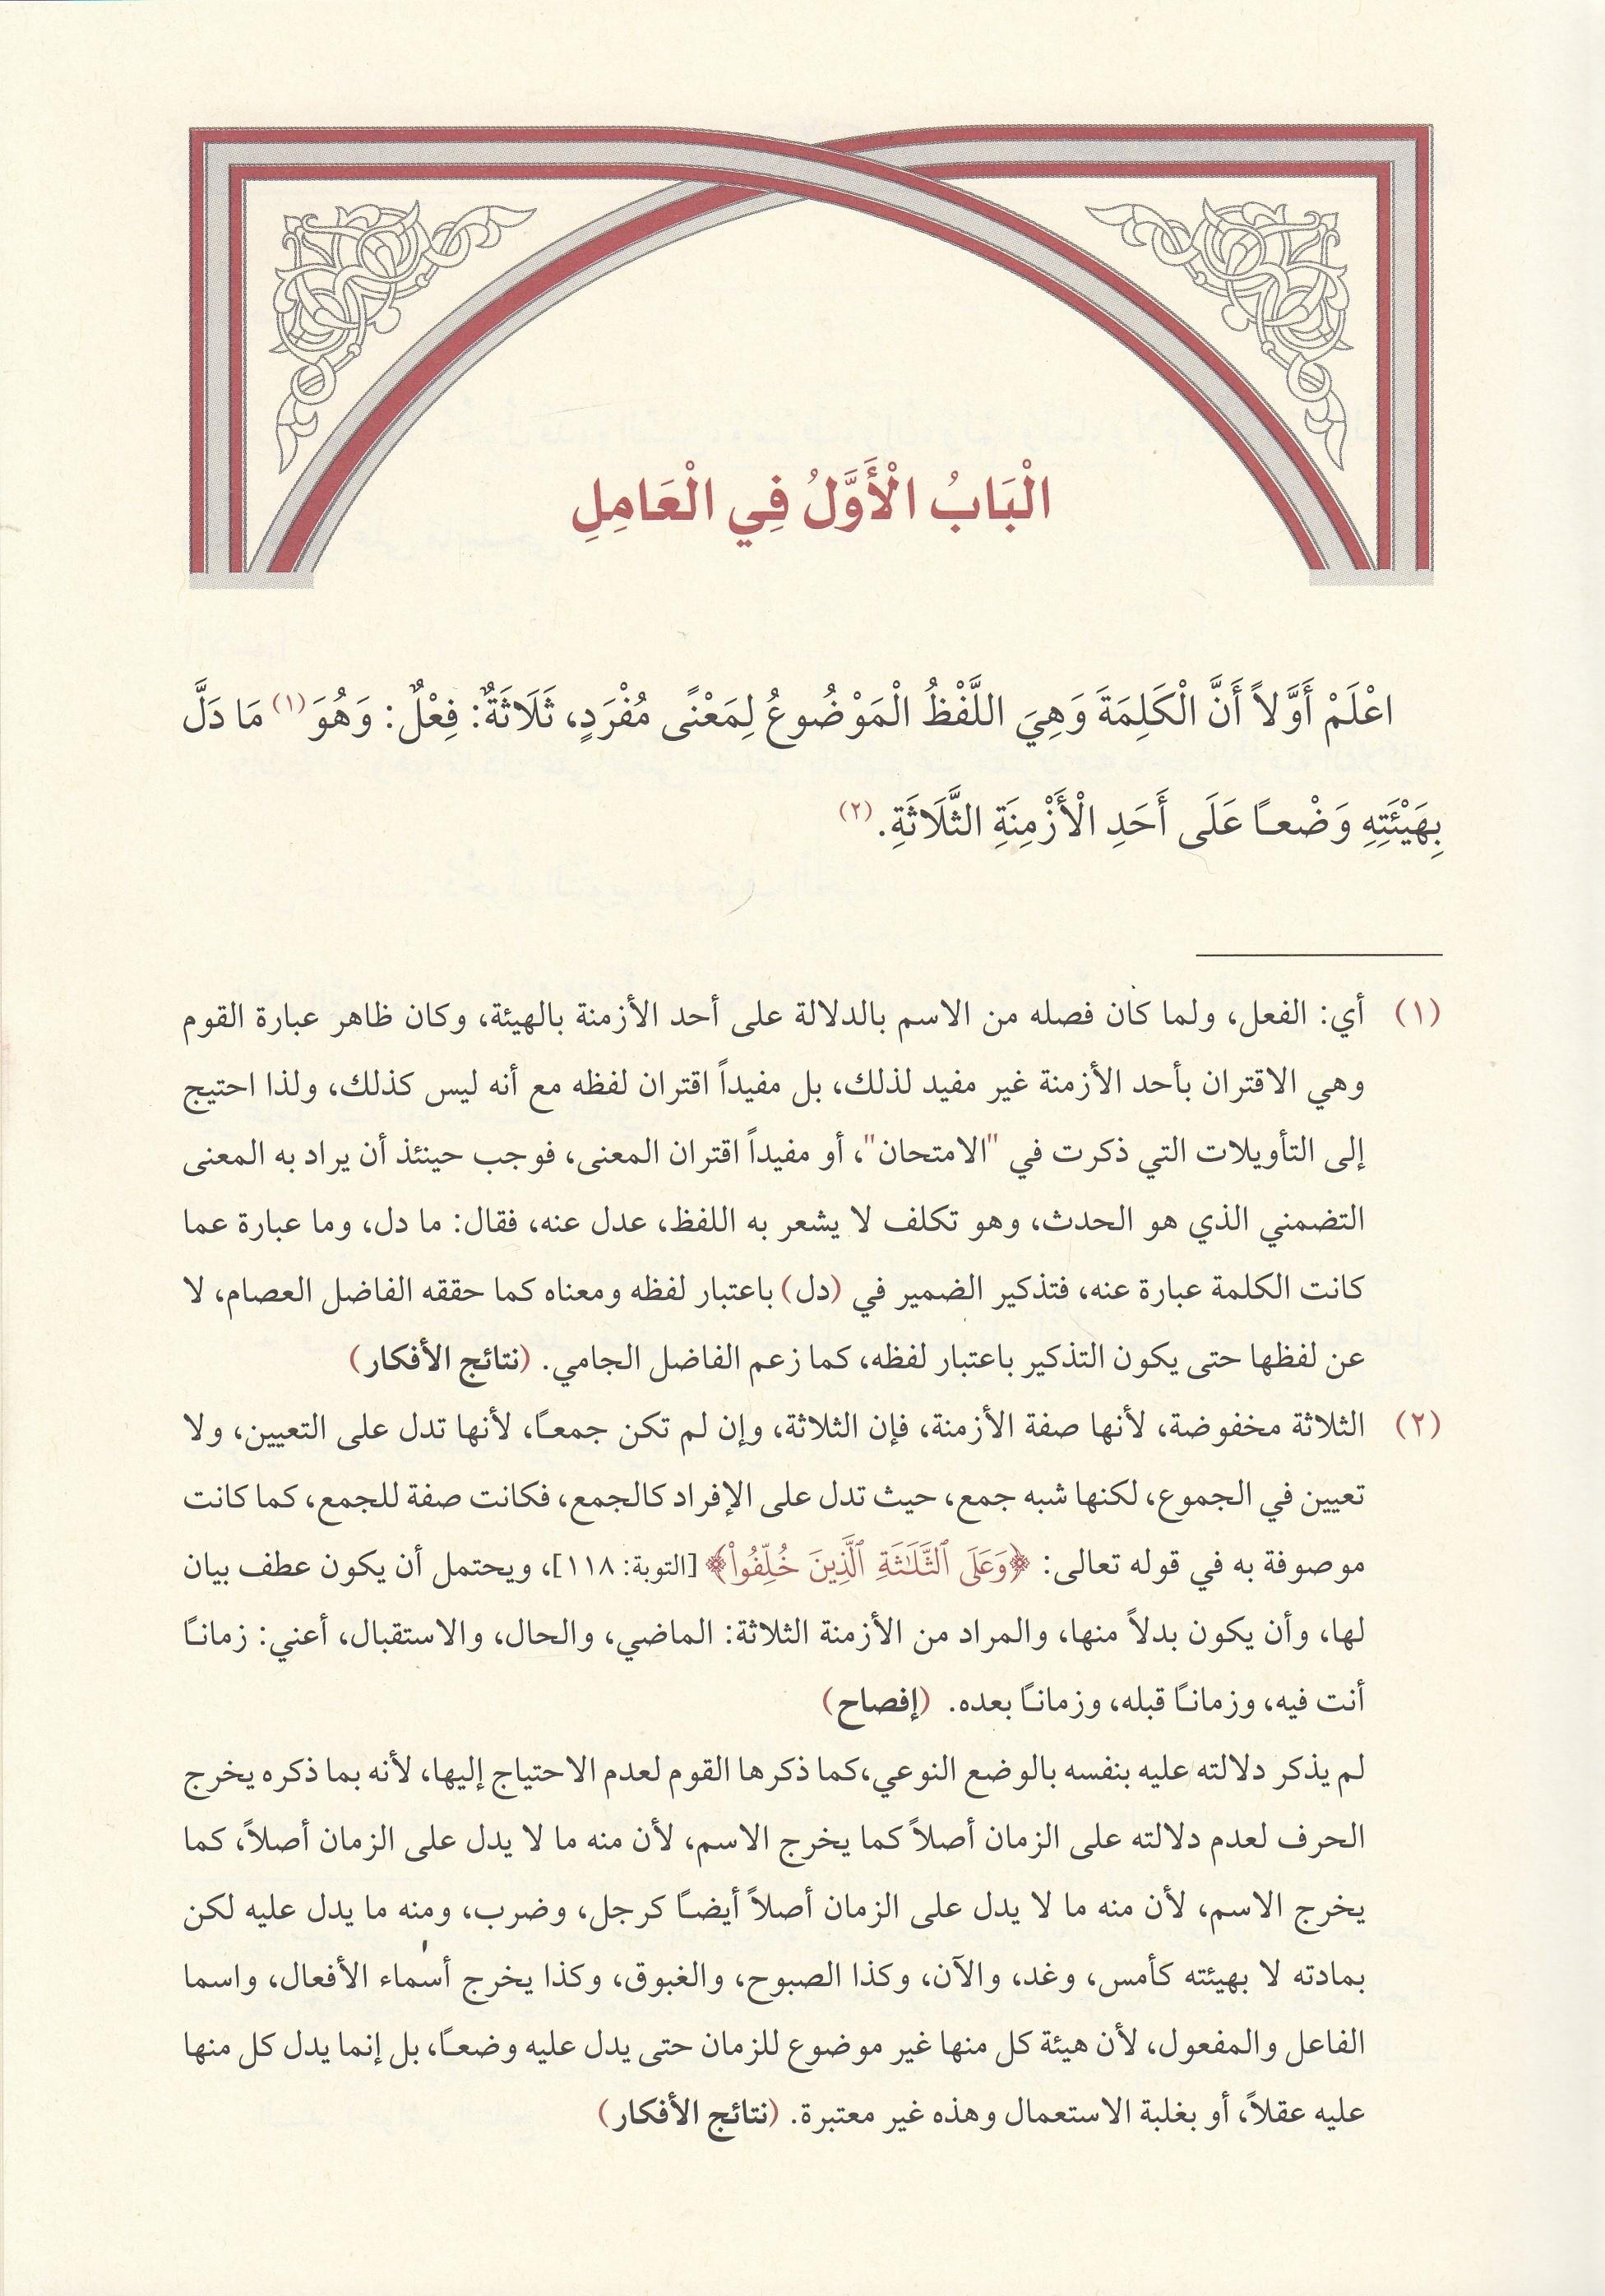 الْبَابُ الْأَوَّلُ فِي الْعَامِلِ
اعْلَمْ أَوَّلاً أَنَّ الْكَلِمَةَ وَهِيَ اللَّفْظُ الْمَوْضُوعُ لِمَعْنًى مُفْرَدٍ، ثَلَاثَةٌ: فِعْلٌ: وَهُوَ(١) مَا دَلَّ
بِهَيْئَتِهِ وَضْعـًا عَلَى أَحَدِ الْأَزْمِنَةِ الثَّلَاثَةِ.(٢)
(١) أي: الفعل، ولما كان فصله من الاسم بالدلالة على أحد الأزمنة بالهيئة، وكان ظاهر عبارة القوم
وهي الاقتران بأحد الأزمنة غير مفيد لذلك، بل مفيداً اقتران لفظه مع أنه ليس كذلك، ولذا احتيج
إلى التأويلات التي ذكرت في "الامتحان"، أو مفيداً اقتران المعنى، فوجب حينئذ أن يراد به المعنى
التضمني الذي هو الحدث، وهو تكلف لا يشعر به اللفظ، عدل عنه، فقال: ما دل، وما عبارة عما
كانت الكلمة عبارة عنه، فتذكير الضمير في (دل) باعتبار لفظه ومعناه كما حققه الفاضل العصام، لا
عن لفظها حتى يكون التذكير باعتبار لفظه، كما زعم الفاضل الجامي. (نتائج الأفكار)
(٢) الثلاثة مخفوضة، لأنها صفة الأزمنة، فإن الثلاثة، وإن لم تكن جمعـًا، لأنها تدل على التعيين، ولا
تعيين في الجموع، لكنها شبه جمع، حيث تدل على الإفراد كالجمع، فكانت صفة للجمع، كما كانت
موصوفة به في قوله تعالى: ﴿وَعَلَى ٱلثَّلَـٰثَةِ ٱلَّذِينَ خُلِّفُواْ﴾ [التوبة: ١١٨]، ويحتمل أن يكون عطف بيان
لها، وأن يكون بدلاً منها، والمراد من الأزمنة الثلاثة: الماضي، والحال، والاستقبال، أعني: زمانـًا
أنت فيه، وزمانـًا قبله، وزمانـًا بعده. (إفصاح)
لم يذكر دلالته عليه بنفسه بالوضع النوعي،كما ذكرها القوم لعدم الاحتياج إليها، لأنه بما ذكره يخرج
الحرف لعدم دلالته على الزمان أصلاً كما يخرج الاسم، لأن منه ما لا يدل على الزمان أصلاً، كما
يخرج الاسم، لأن منه ما لا يدل على الزمان أصلاً أيضـًا كرجل، وضرب، ومنه ما يدل عليه لكن
بمادته لا بهيئته كأمس، وغد، والآن، وكذا الصبوح، والغبوق، وكذا يخرج أسماء الأفعال، واسما
الفاعل والمفعول، لأن هيئة كل منها غير موضوع للزمان حتى يدل عليه وضعـًا، بل إنما يدل كل منها
عليه عقلاً، أو بغلبة الاستعمال وهذه غير معتبرة. (نتائج الأفكار)